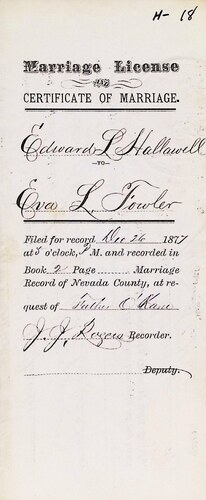 H-18
Marriage License
AND
CERTIFICATE OF MARRIAGE.
Edward L Hallawell
—TO—
Eva L Fowler
Filed for record, Dec 26 1877
at 3 o'clock, P M. and recorded in
Book 2 Page Marriage
Record of Nevada County, at re-
quest of Father O'Kane
J. J. Rogers Recorder.
Deputy.